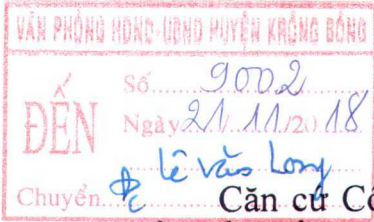 VĂN PHÒNG HĐND-UBND HUYỆN KRÔNG BÔNG
ĐẾN
Số.......9002
Ngày 21/.11/2018
Chuyển.... Đ/c Lê Văn Long
Căn cứ Cô